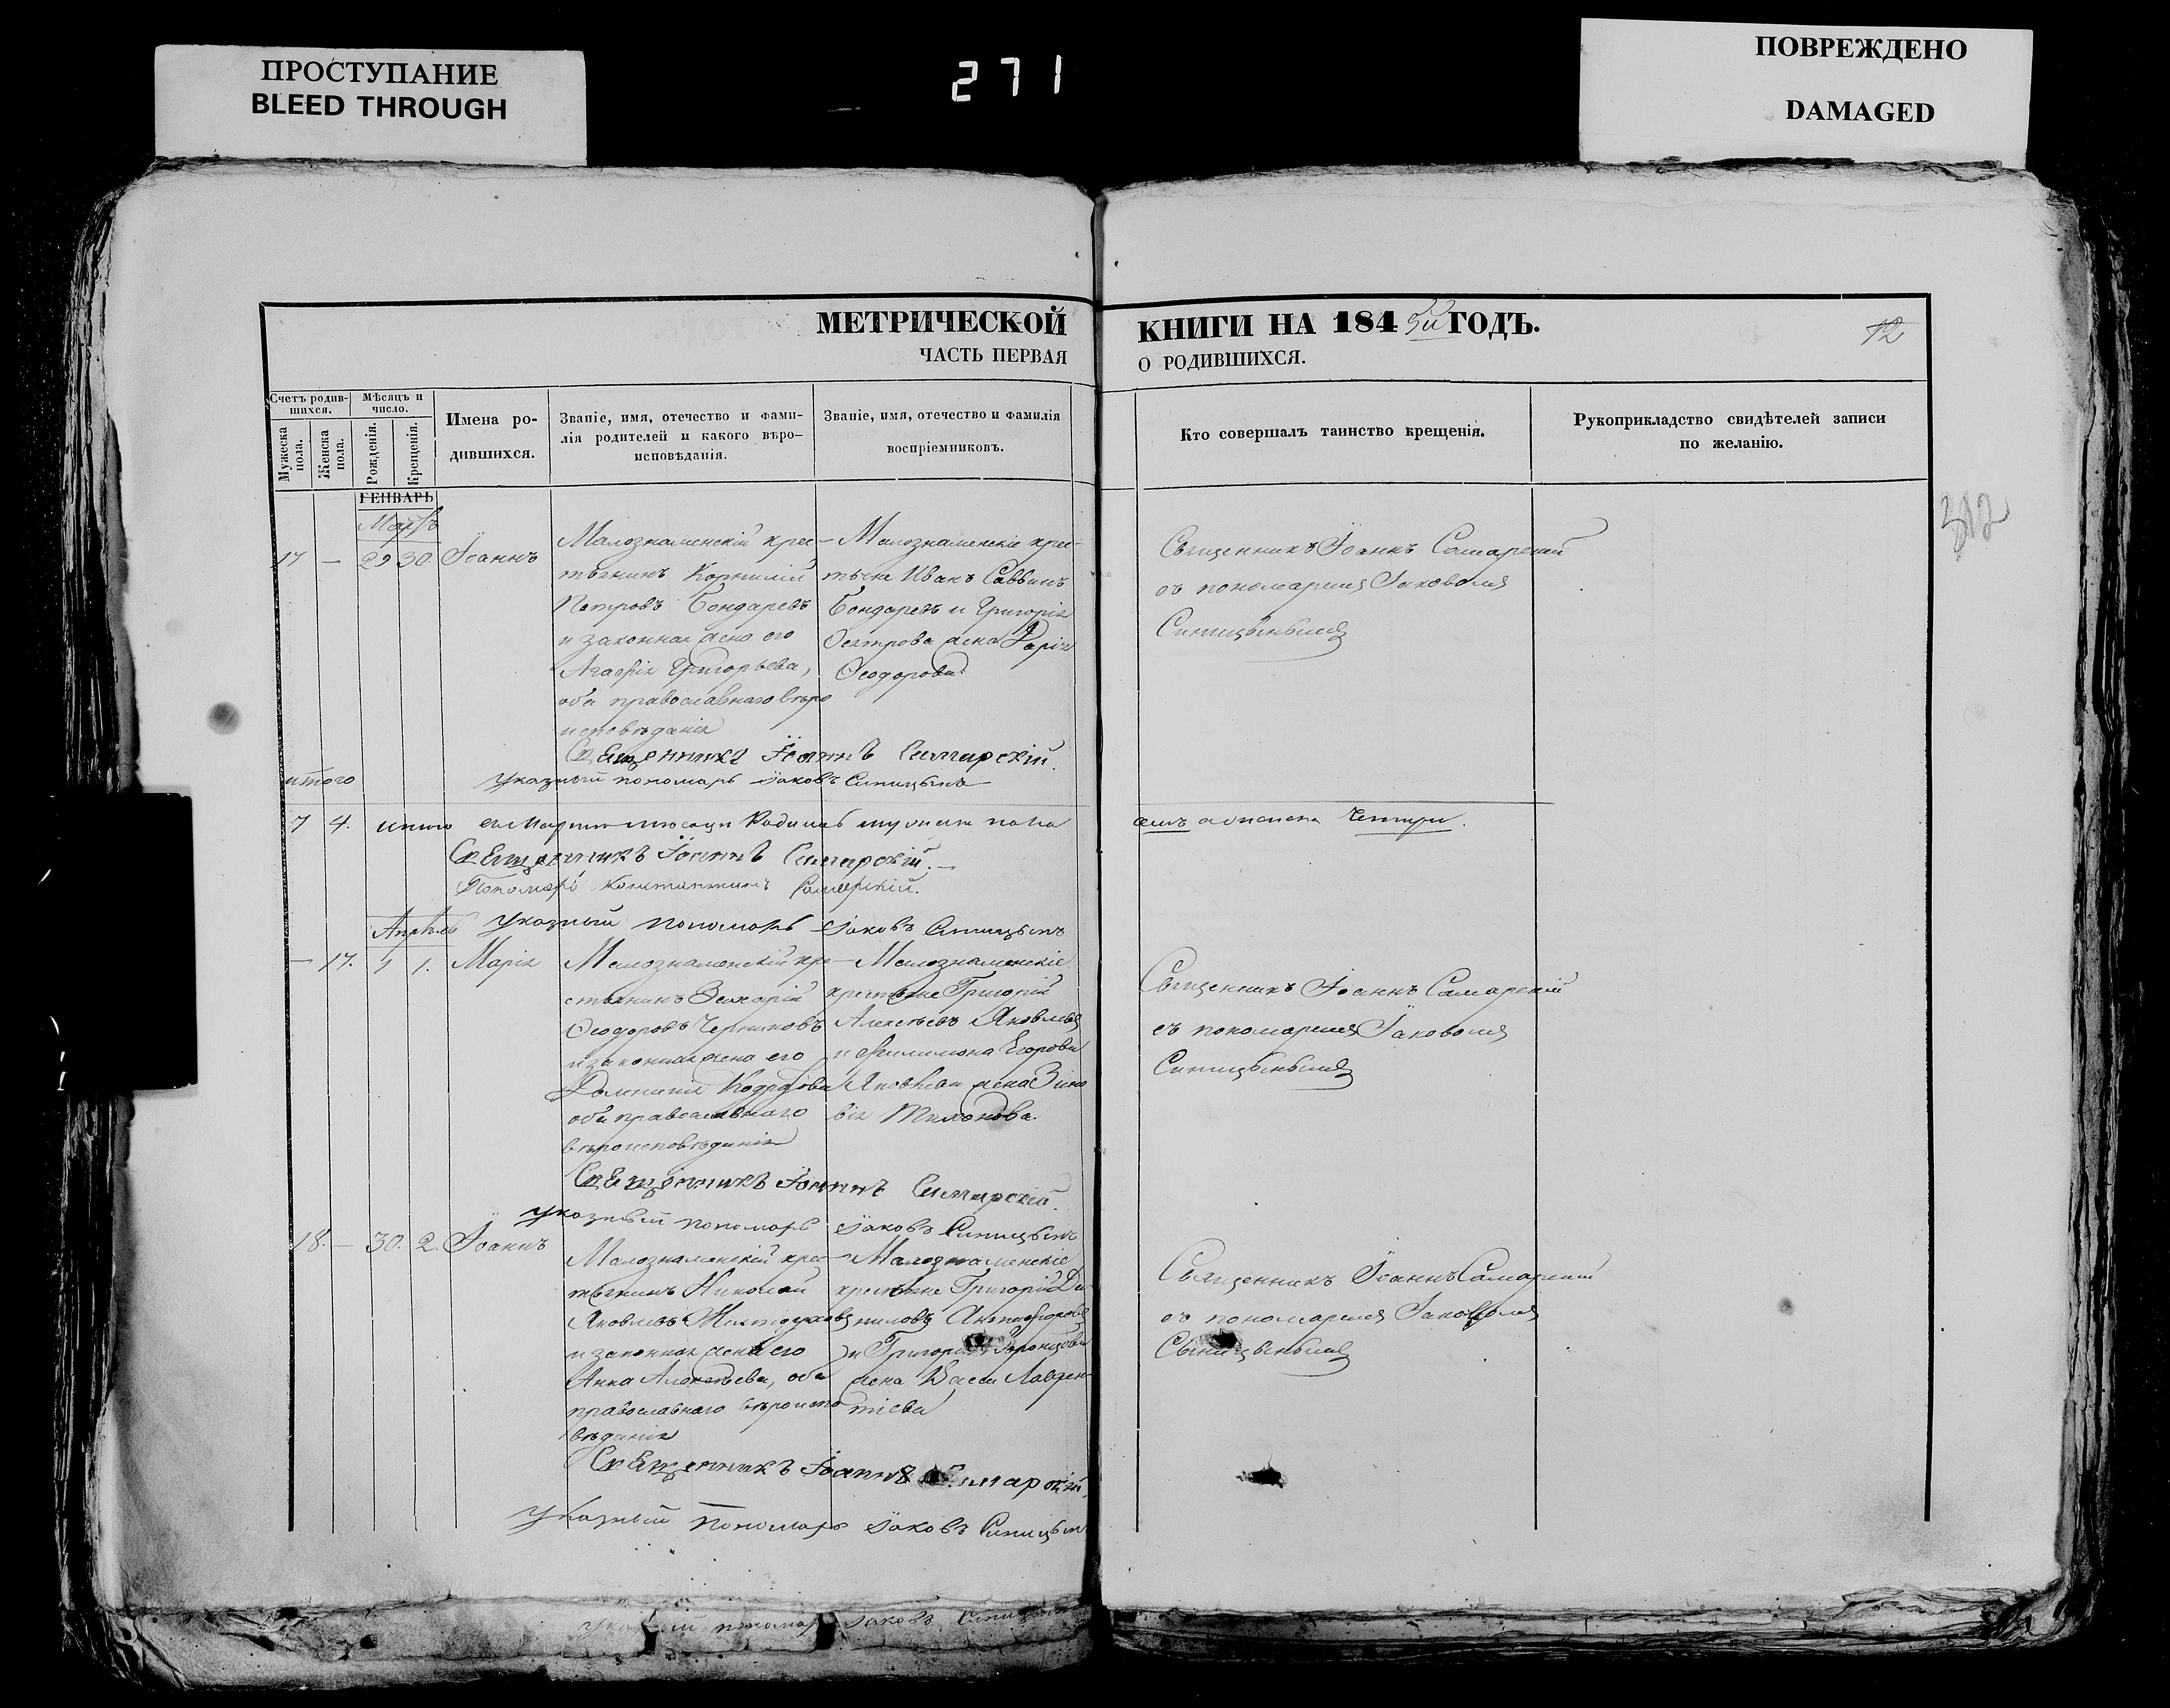 ПРОСТУПАНИЕ
BLEED THROUGH
271
ПОВРЕЖДЕНО
DAMAGED
МЕТРИЧЕСКОЙ КНИГИ НА 1845й ГОДЪ.
12
ЧАСТЬ ПЕРВАЯ О РОДИВШИХСЯ.
Счетъ родив-
шихся.
Мужеска пола.
Женска пола.
Мѣсяцъ и
число.
Рожденія.
Крещенія.
Имена ро-
дившихся.
Званіе, имя, отечество и фами-
лія родителей и какого вѣро-
исповѣданія.
Званіе, имя, отечество и фамилія
воспріемниковъ.
Кто совершалъ таинство крещенія.
Рукоприкладство свидѣтелей записи
по желанію.
312
ГЕНВАРЬ
Мартъ
17 — 29 30. Іоаннъ
Малознаменскій крес-
тьянинъ Корнилій
Петровъ Бондаревъ
и законная жена его
Агафія Григорьева,
оба православнаго вѣро
исповѣданія
Малознаменскіе крес-
тьяне Иванъ Саввинъ
Бондаревъ и Григорія
Петрова жена Дарія
Ѳеодорова
Священникъ Іоаннъ Самарскій
съ пономаремъ Іаковомъ
Синицынымъ
Священникъ Іоаннъ Самарскій.
Указный пономарь Іаковъ Синицынъ
итого
7 4. итого въ Мартѣ мѣсяцѣ Родилось мужеска пола
семь а женска четыри.
Священникъ Іоаннъ Самарскій.
Пономарь Константинъ Самарскій.
Указный пономарь Іаковъ Синицынъ
Апрѣль
— 17. 1 1. Марія
Малознаменскій кре-
стьянинъ Захарій
Ѳеодоровъ Черниковъ
и законная жена его
Домникія
оба православнаго
вѣроисповѣданія
Малознаменскіе
крестьяне Григорій
Алексѣевъ Яковлевъ
и Филимона Егорова
Яковлева жена Зино
вія Тихонова.
Священникъ Іоаннъ Самарскій
съ пономаремъ Іаковомъ
Синицынымъ
Священникъ Іоаннъ Самарскій.
Указный пономарь Іаковъ Синицынъ
18. — 30. 2. Іоаннъ
Малознаменскій крес-
тьянинъ Николай
Яковлевъ
и законная жена его
Анна Алексѣева, оба
православнаго вѣроиспо
вѣданія
Малознаменскіе
крестьяне Григорій Да-
ниловъ
и Григорія
жена Васса Лаврен-
тіева
Священникъ Іоаннъ Самарскій
съ пономаремъ Іаковомъ
Синицынымъ
Священникъ Іоаннъ Самарскій.
Указный пономарь Іаковъ Синицынъ
Указный пономарь Іаковъ Синицынъ